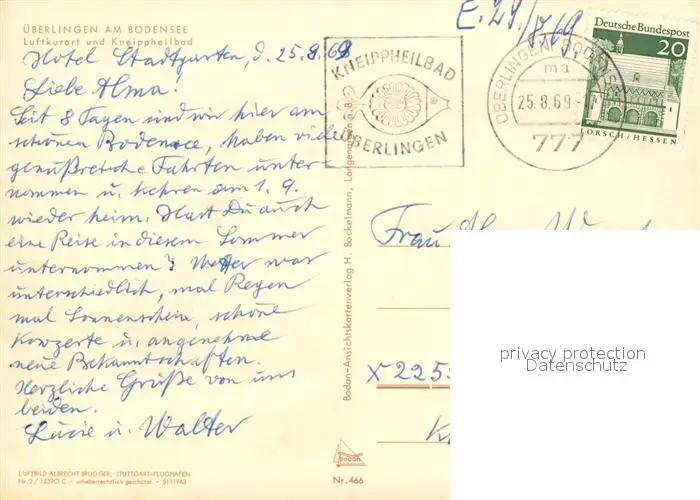 ÜBERLINGEN AM BODENSEE
Luftkurort und Kneippheilbad
Hotel Stadtgarten, d. 25.8.69
Liebe Alma!
Seit 8 Tagen sind wir hier am
schönen Bodensee, haben viele
genußreiche Fahrten unter-
nommen u. kehren am 1. 9.
wieder heim. Hast Du auch
eine Reise in diesem Sommer
unternommen? Wetter war
unterschiedlich, mal Regen
mal Sonnenschein, schöne
Konzerte u. angenehme
neue Bekanntschaften.
Herzliche Grüße von uns
beiden.
Lucie u. Walter
LUFTBILD ALBRECHT BRUGGER, STUTTGART-FLUGHAFEN
Nr. 2 / 15390 C • urheberrechtlich geschützt • 5111963
Bodan-Ansichtskartenverlag H. Bockelmann,
bodan
Nr. 466
KNEIPPHEILBAD
ÜBERLINGEN
E. 29/8 69
ÜBERLINGEN
ma
25.8.69
777
Deutsche Bundespost
20
LORSCH/HESSEN
Frau
X 225
privacy protection
Datenschutz